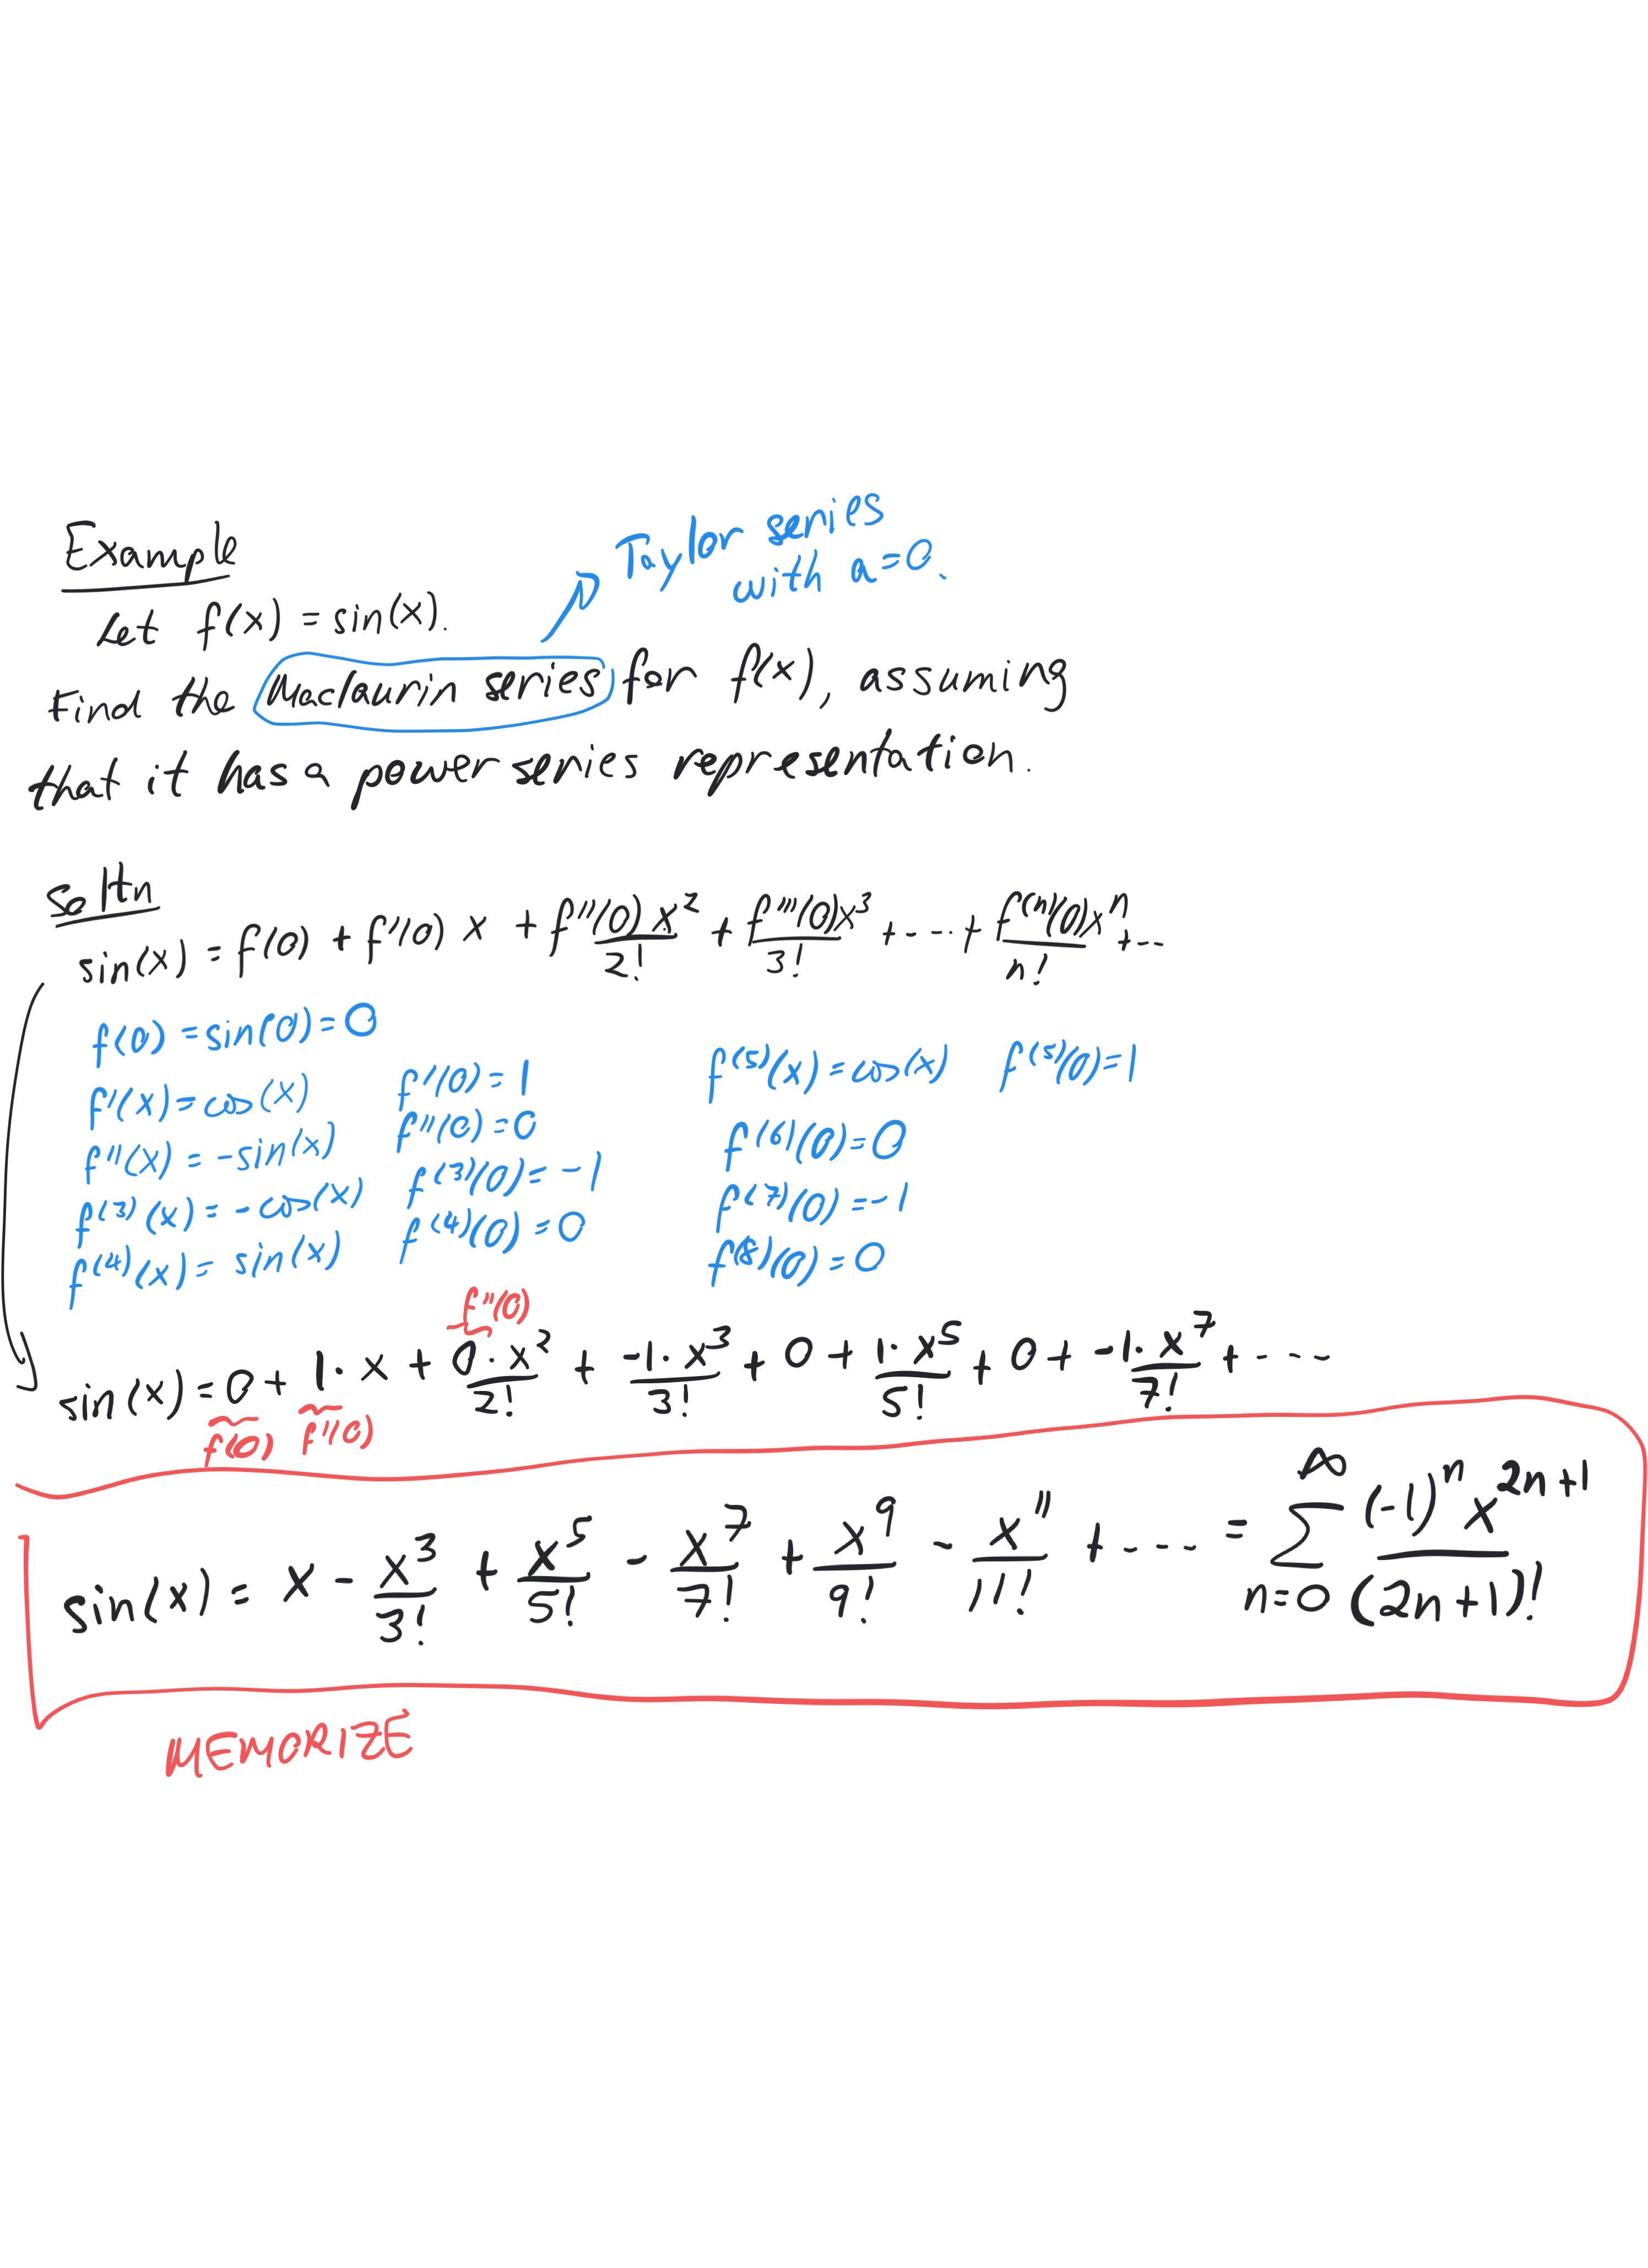 Example
Taylor series
with a=0.
Let f(x) = sin(x).
Find the Maclaurin series for f(x), assuming
that it has a power series representation.
Soltn
sin(x) = f(0) + f'(0) x + f''(0) x² / 2! + f'''(0) x³ / 3! + ---- + f⁽ⁿ⁾(0) xⁿ / n! + ---
f(0) = sin(0) = 0
f'(x) = cos(x) f'(0) = 1
f''(x) = -sin(x) f''(0) = 0
f⁽³⁾(x) = -cos(x) f⁽³⁾(0) = -1
f⁽⁴⁾(x) = sin(x) f⁽⁴⁾(0) = 0
f⁽⁵⁾(x) = cos(x) f⁽⁵⁾(0) = 1
f⁽⁶⁾(0) = 0
f⁽⁷⁾(0) = -1
f⁽⁸⁾(0) = 0
f''(0)
sin(x) = 0 + 1· x + 0· x² / 2! + -1· x³ / 3! + 0 + 1· x⁵ / 5! + 0 + -1· x⁷ / 7! + ----
f(0) f'(0)
sin(x) = x - x³ / 3! + x⁵ / 5! - x⁷ / 7! + x⁹ / 9! - x¹¹ / 11! + ---- = ∑ n=0 ∞ (-1)ⁿ x²ⁿ⁺¹ / (2n+1)!
MEMORIZE